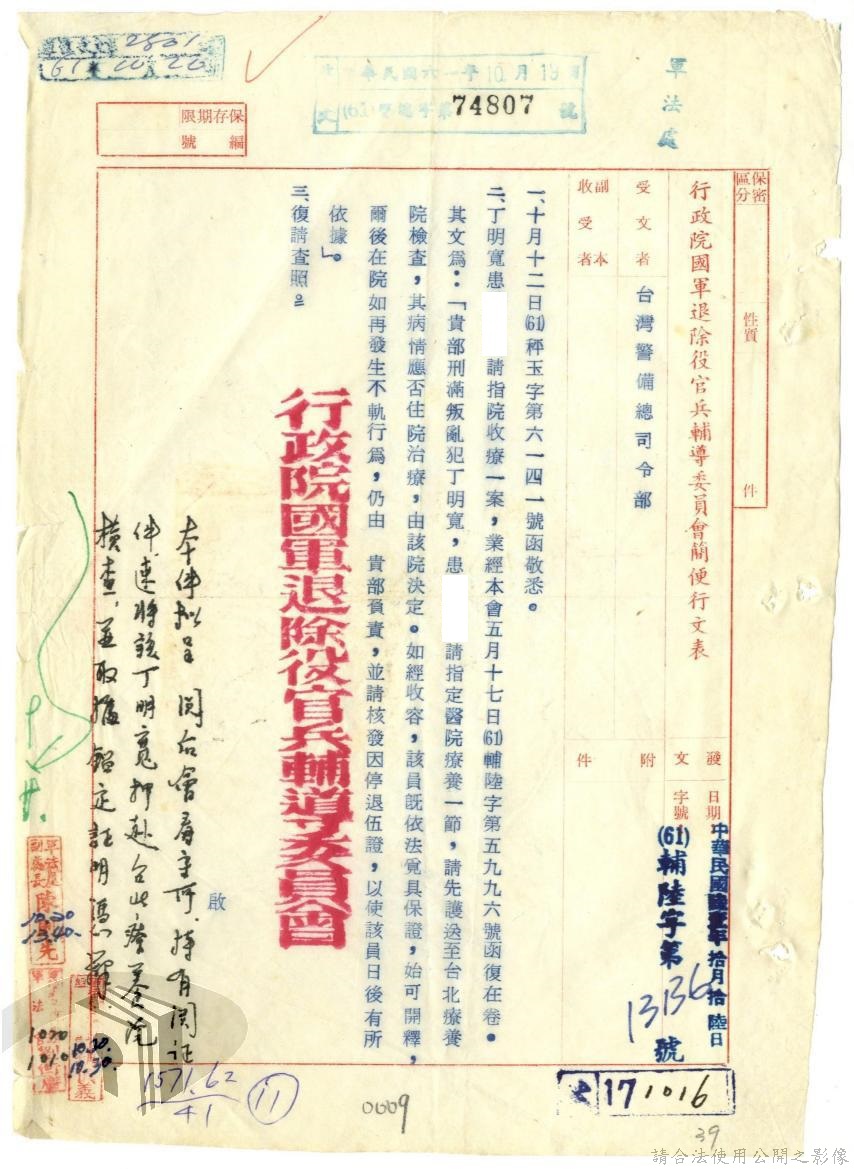 軍法處
中華民國六一年10月19日
文(61)警總字第74807號
2801
61 10 20
保存期限
編號
保密區分
性質
件
行政院國軍退除役官兵輔導委員會簡便行文表
受文者
台灣警備總司令部
副本收受者
發文
日期
中華民國陸壹年拾月拾陸日
字號
(61)輔陸字第13136號
附件
一、十月十二日(61)秤玉字第六一四一號函敬悉。
二、丁明寬患 請指院收療一案,業經本會五月十七日(61)輔陸字第五九九六號函復在卷。
其文為:「貴部刑滿叛亂犯丁明寬,患 請指定醫院療養一節,請先護送至台北療養
院檢查,其病情應否住院治療,由該院決定。如經收容,該員既依法覓具保證,始可開釋,
爾後在院如再發生不軌行為,仍由 貴部負責,並請核發因停退伍證,以使該員日後有所
依據」。
三、復請查照
行政院國軍退除役官兵輔導委員會
啟
本件擬呈 閱后會
件,速將該丁明寬押赴台北療養院
檢查,並取據鑑定証明
10.20
13.40
1020
1010
10.20.
10.30.
1571.62
41
11
0009
171016
39
請合法使用公開之影像